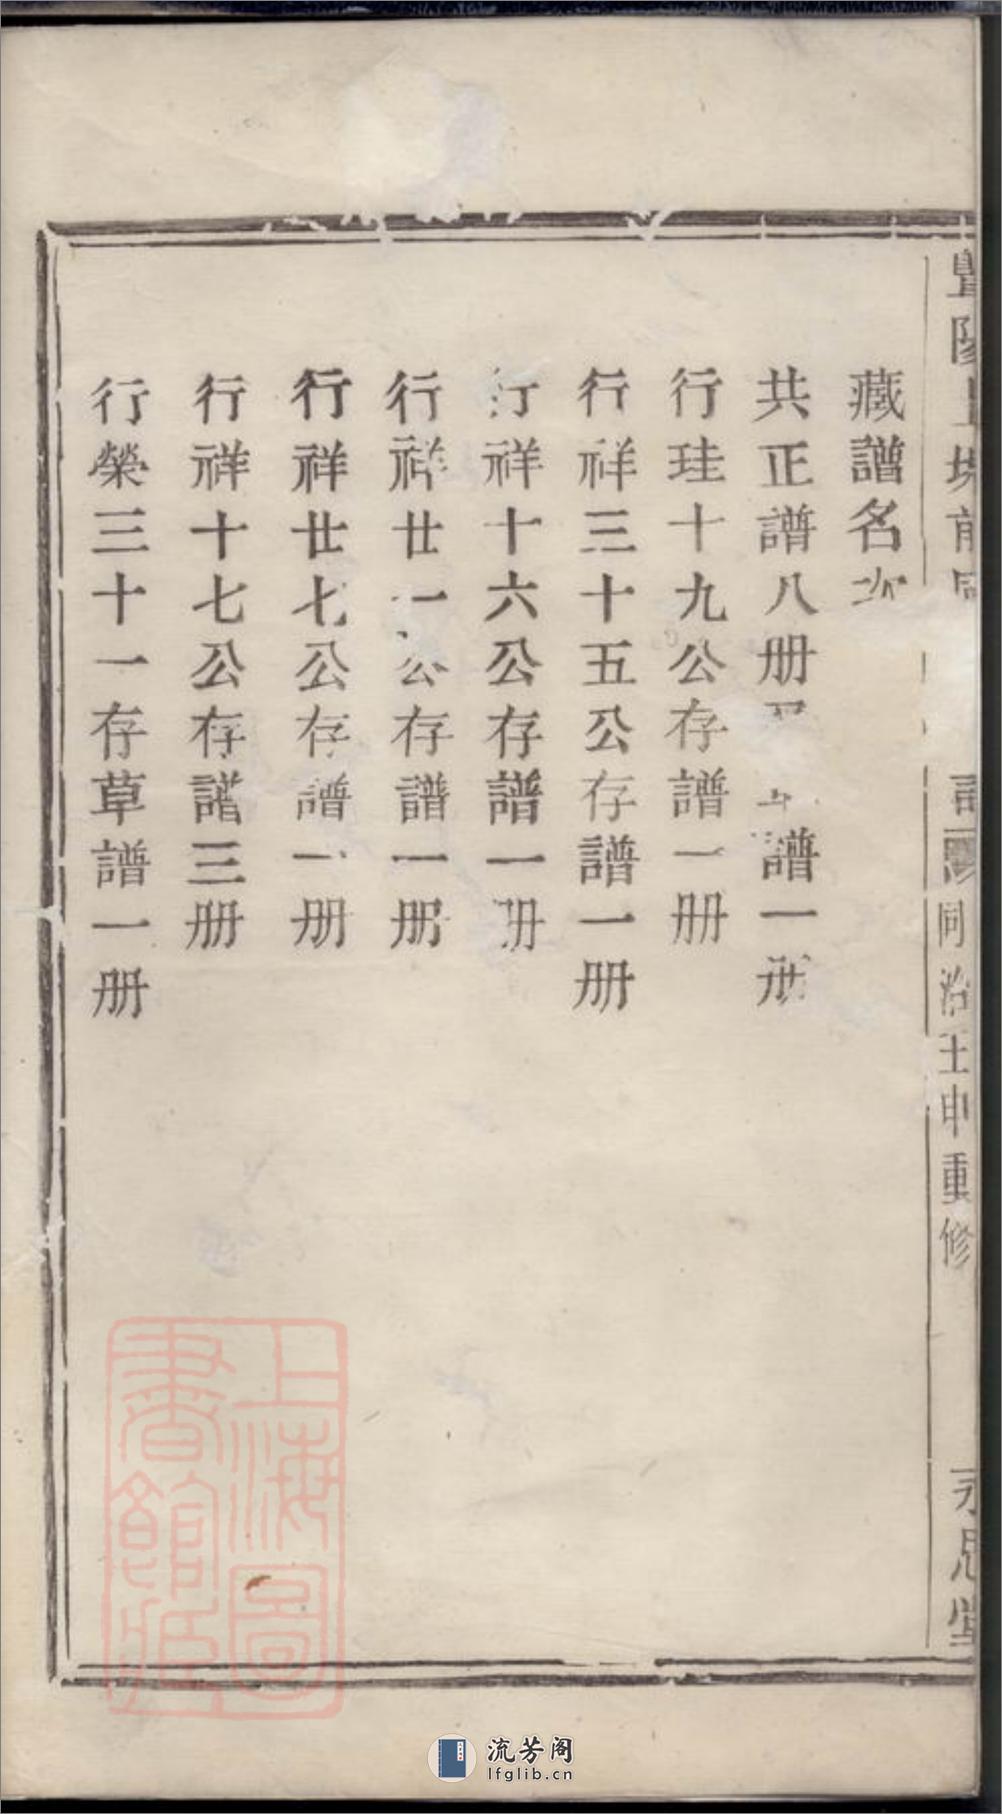 藏譜名次
共正譜八册 譜一册
行珪十九公存譜一册
行祥三十五公存譜一册
行祥十六公存譜一册
行祥廿一公存譜一册
行祥廿七公存譜一册
行祥十七公存譜三册
行榮三十一存草譜一册
暨陽上 前 同治壬申重修 永思堂
上海圖
書館藏
流芳阁
lfglib.cn